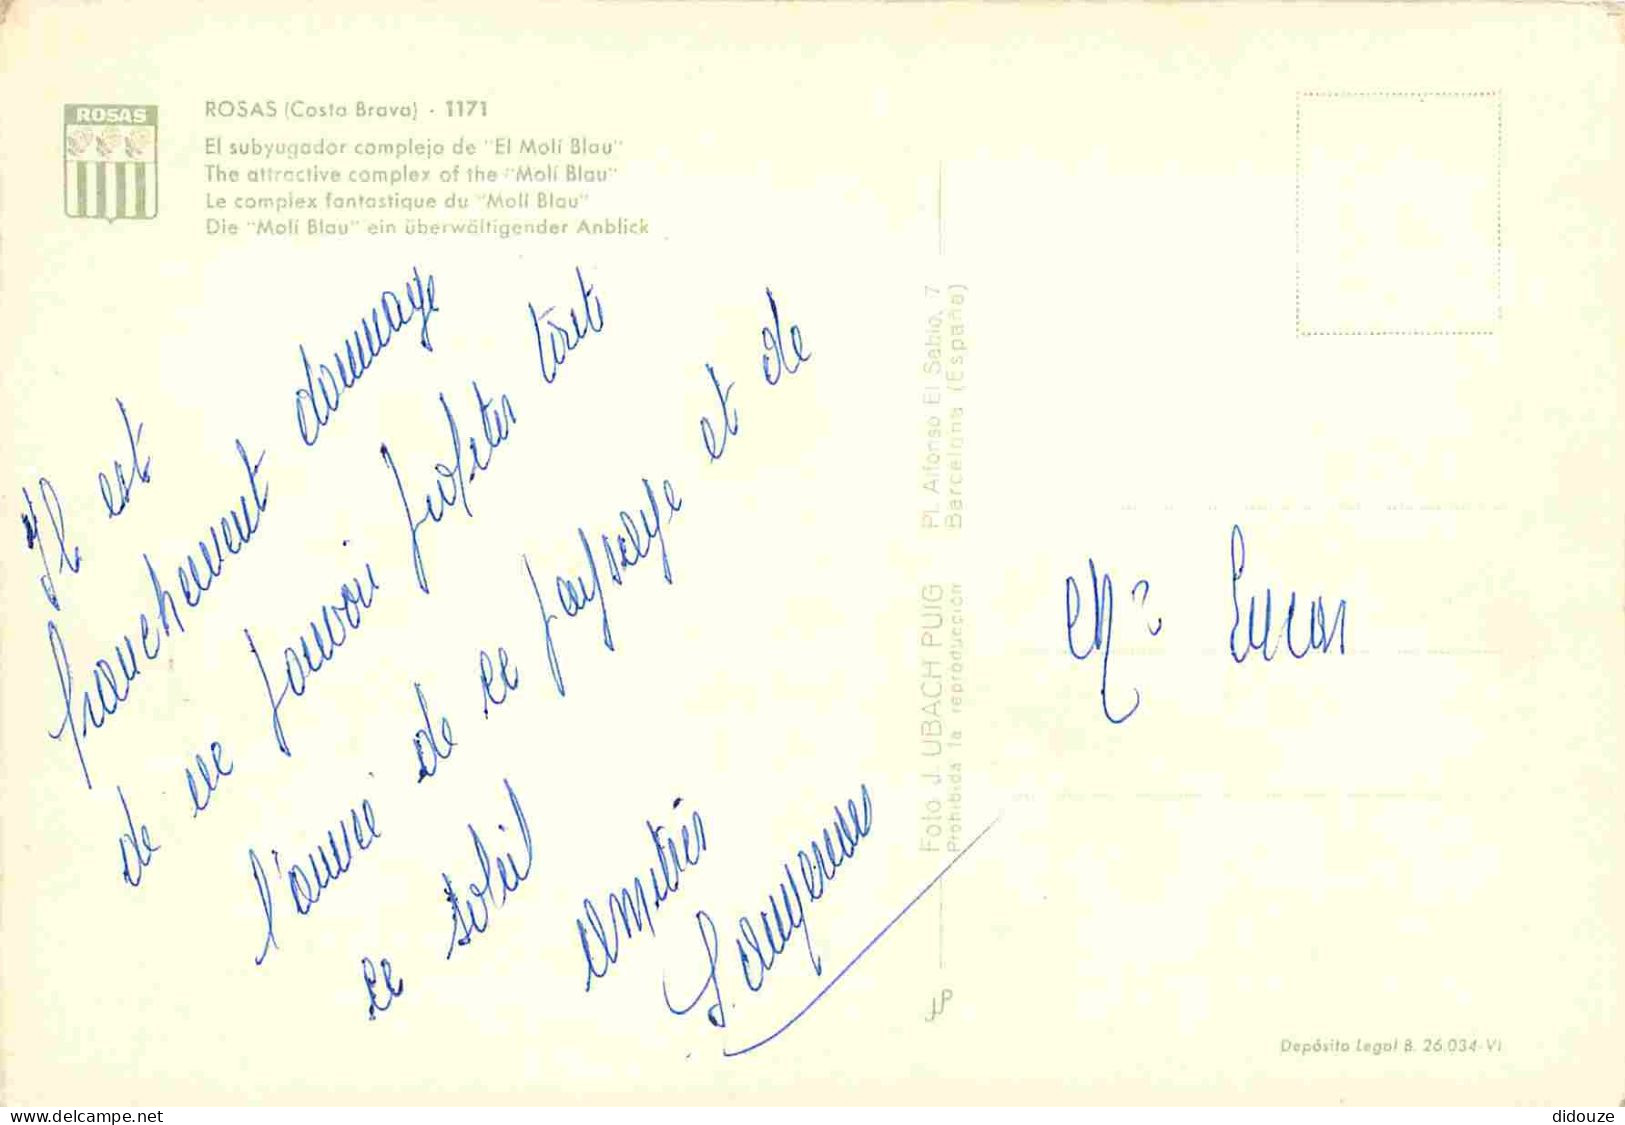 ROSAS
ROSAS (Costa Brava) - 1171
El subyugador complejo de "El Molí Blau"
The attractive complex of the "Molí Blau"
Le complex fantastique du "Molí Blau"
Die "Molí Blau" ein überwältigender Anblick
Il est
franchement dommage
de ne pouvoir profiter toute
l'année de ce paysage et de
ce soleil
amitiés
Foto J. UBACH PUIG Pl. Alfonso El Sabio, 7
Prohibida la reproducción Barcelona (España)
JUP
Lucas
Depósito Legal B. 26.034-VI
www.delcampe.net
didouze